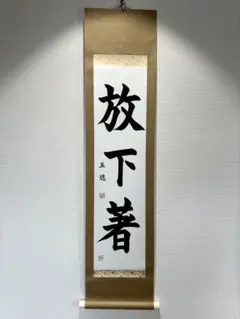 放下著